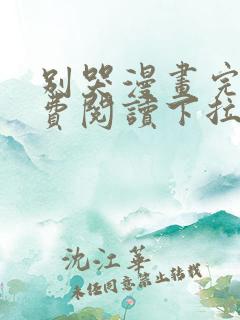 別哭漫畫完
費閱讀下拉
沈江華
未經同意禁止轉載